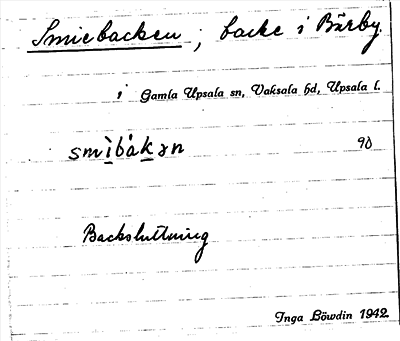 Smiebacken ; backe i Bärby.
i Gamla Upsala sn, Vaksala hd, Upsala l.
smìbák̲ən 90
Backsluttning
Inga Löwdin 1942.